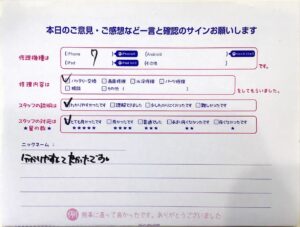 本日のご意見・ご感想など一言と確認のサインお願いします
修理機種は
iPhone 7 Android
iPad その他
です。
修理内容は
バッテリー交換 画面修理 水没修理 パーツ修理
相談 その他
をしてもらいました。
スタッフの説明は
わかりやすかったです 理解できました 少しわかりにくかったです 難しかったです
スタッフの対応は
★星の数★
とても良かったです 良かったです 普通でした あまり良くなかったです 良くなかったです
★★★★★ ★★★★ ★★★ ★★ ★
ニックネーム:
分かりやすくて良かったです。
無事に直って良かったです。ありがとうございました